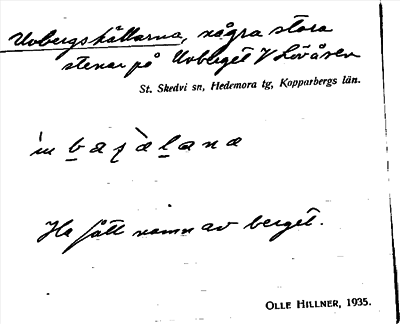 Uvbergshällarna, några stora
stenar på Uvberget V Lövåsen
St. Skedvi sn, Hedemora tg, Kopparbergs län.
Ha fått namn av berget.
OLLE HILLNER, 1935.